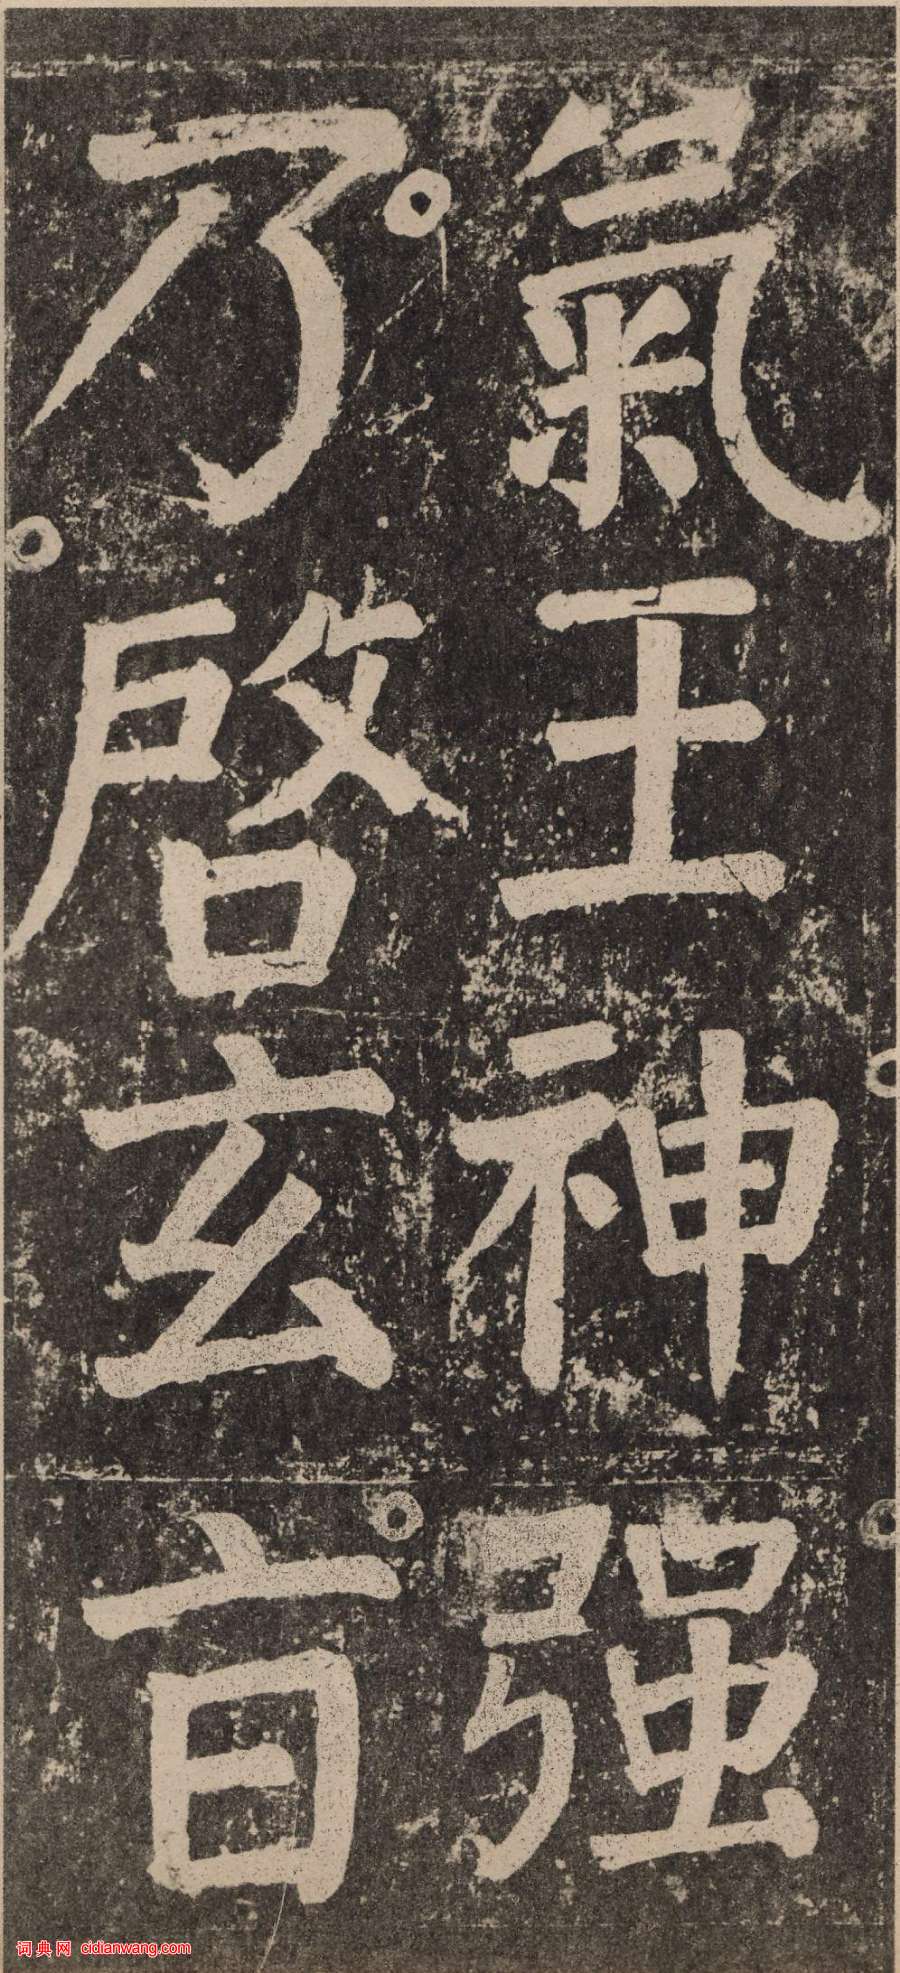 氣王神强
乃啓玄㫖
词典网 cidianwang.com